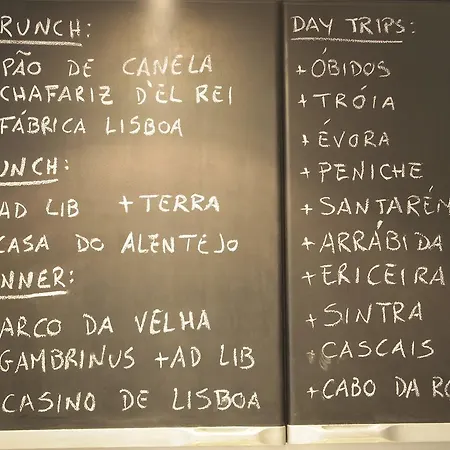 RUNCH:
PÃO DE CANELA
CHAFARIZ D'EL REI
FÁBRICA LISBOA
UNCH:
AD LIB + TERRA
CASA DO ALENTEJO
NNER:
ARCO DA VELHA
GAMBRINUS + AD LIB
CASINO DE LISBOA
DAY TRIPS:
+ ÓBIDOS
+ TRÓIA
+ ÉVORA
+ PENICHE
+ SANTARÉM
+ ARRÁBIDA
+ ERICEIRA
+ SINTRA
+ CASCAIS
+ CABO DA RO